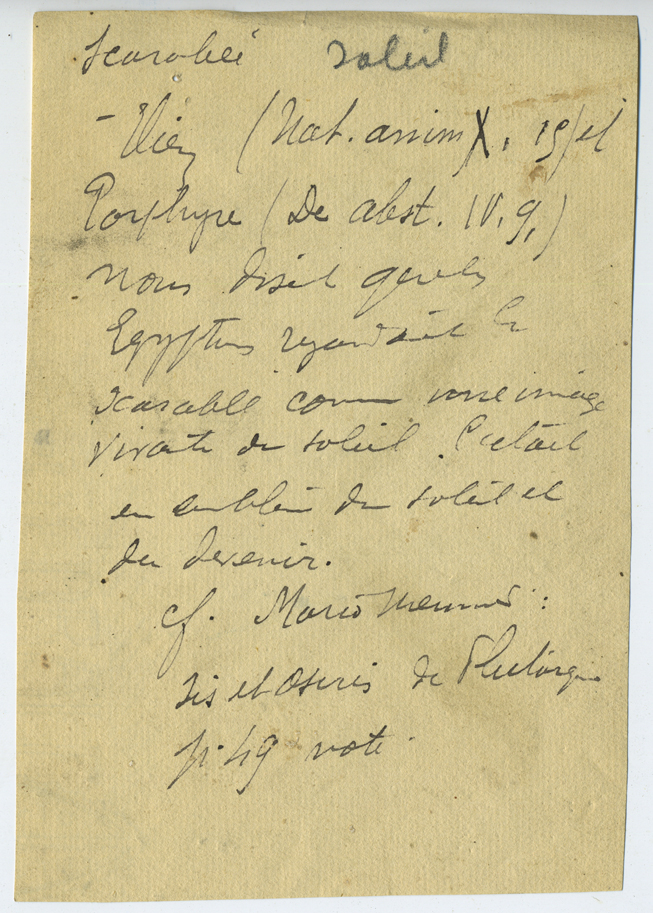 Scarabée Soleil
- Elien (Nat. anim X, 15) et
Porphyre (De abst. IV, 9,)
nous disent que les
Egyptiens regardaient le
scarabée comme une image
vivante du soleil. C'était
un emblème du soleil et
du devenir.
cf. Mario Meunier :
Isis et Osiris de Plutarque
p. 49 note.